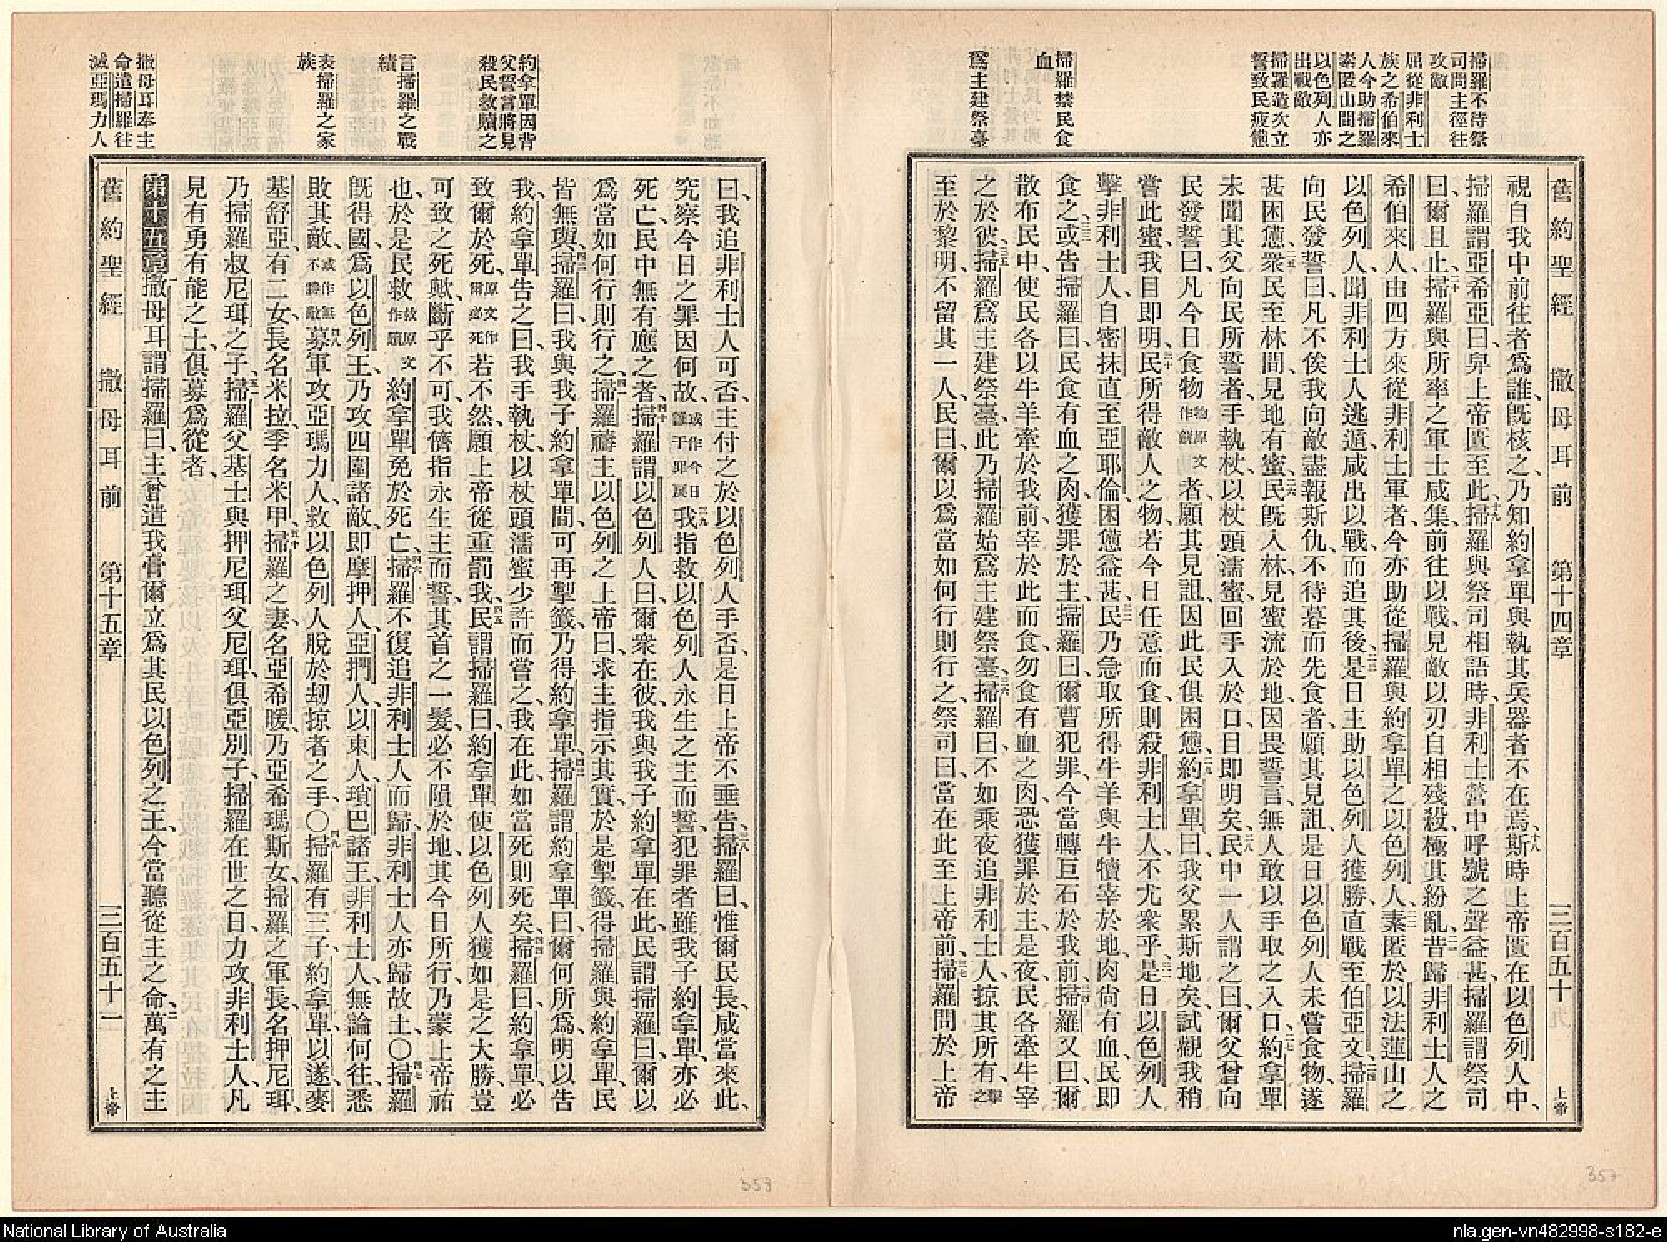 掃羅不待祭
司問主徑往
攻敵
屈從非利士
族之希伯來
人今助掃羅
素匿山間之
以色列人亦
出戰敵
掃羅造次立
誓致民疲憊
掃羅禁民食
血
爲主建祭臺
舊約聖經 撒母耳前 第十四章 三百五十 上帝
視自我中前往者爲誰、旣核之、乃知約拿單與執其兵器者不在焉、斯時上帝匱在以色列人中、
掃羅謂亞希亞曰、舁上帝匱至此、掃羅與祭司相語時、非利士營中呼號之聲益甚、掃羅謂祭司
曰、爾且止、掃羅與所率之軍士咸集、前往以戰、見敵以刃自相殘殺、極其紛亂、昔歸非利士人之
希伯來人、由四方來從非利士軍者、今亦助從掃羅與約拿單之以色列人、素匿於以法蓮山之
以色列人、聞非利士人逃遁、咸出以戰、而追其後、是日主助以色列人獲勝、直戰至伯亞文、掃羅
向民發誓曰、凡不俟我向敵盡報斯仇、不待暮而先食者、願其見詛、是日以色列人未嘗食物、遂
甚困憊、衆民至林間、見地有蜜、民旣入林、見蜜流於地、因畏誓言、無人敢以手取之入口、約拿單
未聞其父向民所誓者、手執杖、以杖頭濡蜜、回手入於口、目卽明矣、民中一人謂之曰、爾父曾向
民發誓曰、凡今日食物物原文作餅者、願其見詛、因此民俱困憊、約拿單曰、我父累斯地矣、試觀我稍
嘗此蜜、我目卽明、民所得敵人之物、若今日任意而食、則殺非利士人不尤衆乎、是日以色列人
擊非利士人、自密抹直至亞耶倫、困憊益甚、民乃急取所得牛羊與牛犢、宰於地、肉尙有血、民卽
食之、或告掃羅曰、民食有血之肉、獲罪於主、掃羅曰、爾曹犯罪、今當轉巨石於我前、掃羅又曰、爾
散布民中、使民各以牛羊牽於我前、宰於此而食、勿食有血之肉、恐獲罪於主、是夜民各牽牛宰
之於彼、掃羅爲主建祭臺、此乃掃羅始爲主建祭臺、掃羅曰、不如乘夜追非利士人、掠其所有、擊之
至於黎明、不留其一人、民曰、爾以爲當如何行則行之、祭司曰、當在此至上帝前、掃羅問於上帝
357
約拿單因背
父誓言將見
殺民救贖之
言掃羅之戰
績
表掃羅之家
族
撒母耳奉主
命遣掃羅往
滅亞瑪力人
曰、我追非利士人可否、主付之於以色列人手否、是日上帝不垂告、掃羅曰、惟爾民長、咸當來此、
究察今日之罪因何故、或作今日誰干罪戾我指救以色列人永生之主而誓、犯罪者雖我子約拿單、亦必
死亡、民中無有應之者、掃羅謂以色列人曰、爾衆在彼、我與我子約拿單在此、民謂掃羅曰、爾以
爲當如何行則行之、掃羅禱主以色列之上帝曰、求主指示其實、於是掣籤、得掃羅與約拿單、民
皆無與、掃羅曰、我與我子約拿單間、可再掣籤、乃得約拿單、掃羅謂約拿單曰、爾何所爲、明以告
我、約拿單告之曰、我手執杖、以杖頭濡蜜少許而嘗之、我在此、如當死則死矣、掃羅曰、約拿單必
致爾於死、原文作爾必死若不然、願上帝從重罰我、民謂掃羅曰、約拿單使以色列人獲如是之大勝、豈
可致之死歟、斷乎不可、我儕指永生主而誓、其首之一髮、必不隕於地、其今日所行、乃蒙上帝祐
也、於是民救救原文作贖約拿單免於死亡、掃羅不復追非利士人而歸、非利士人亦歸故土、〇掃羅
旣得國、爲以色列王、乃攻四圍諸敵、卽摩押人、亞捫人、以東人、瑣巴諸王、非利士人、無論何往、悉
敗其敵、或作無不難敵募軍攻亞瑪力人、救以色列人脫於刼掠者之手、〇掃羅有三子、約拿單、以遂、麥
基舒亞、有二女、長名米拉、季名米甲、掃羅之妻名亞希暖、乃亞希瑪斯女、掃羅之軍長名押尼珥、
乃掃羅叔尼珥之子、掃羅父基士、與押尼珥父尼珥、俱亞別子、掃羅在世之日、力攻非利士人、凡
見有勇有能之士、俱募爲從者、
第十五章 撒母耳謂掃羅曰、主曾遣我膏爾立爲其民以色列之王、今當聽從主之命、萬有之主
舊約聖經 撒母耳前 第十五章 三百五十一 上帝
358
National Library of Australia
nla.gen-vn482998-s182-e